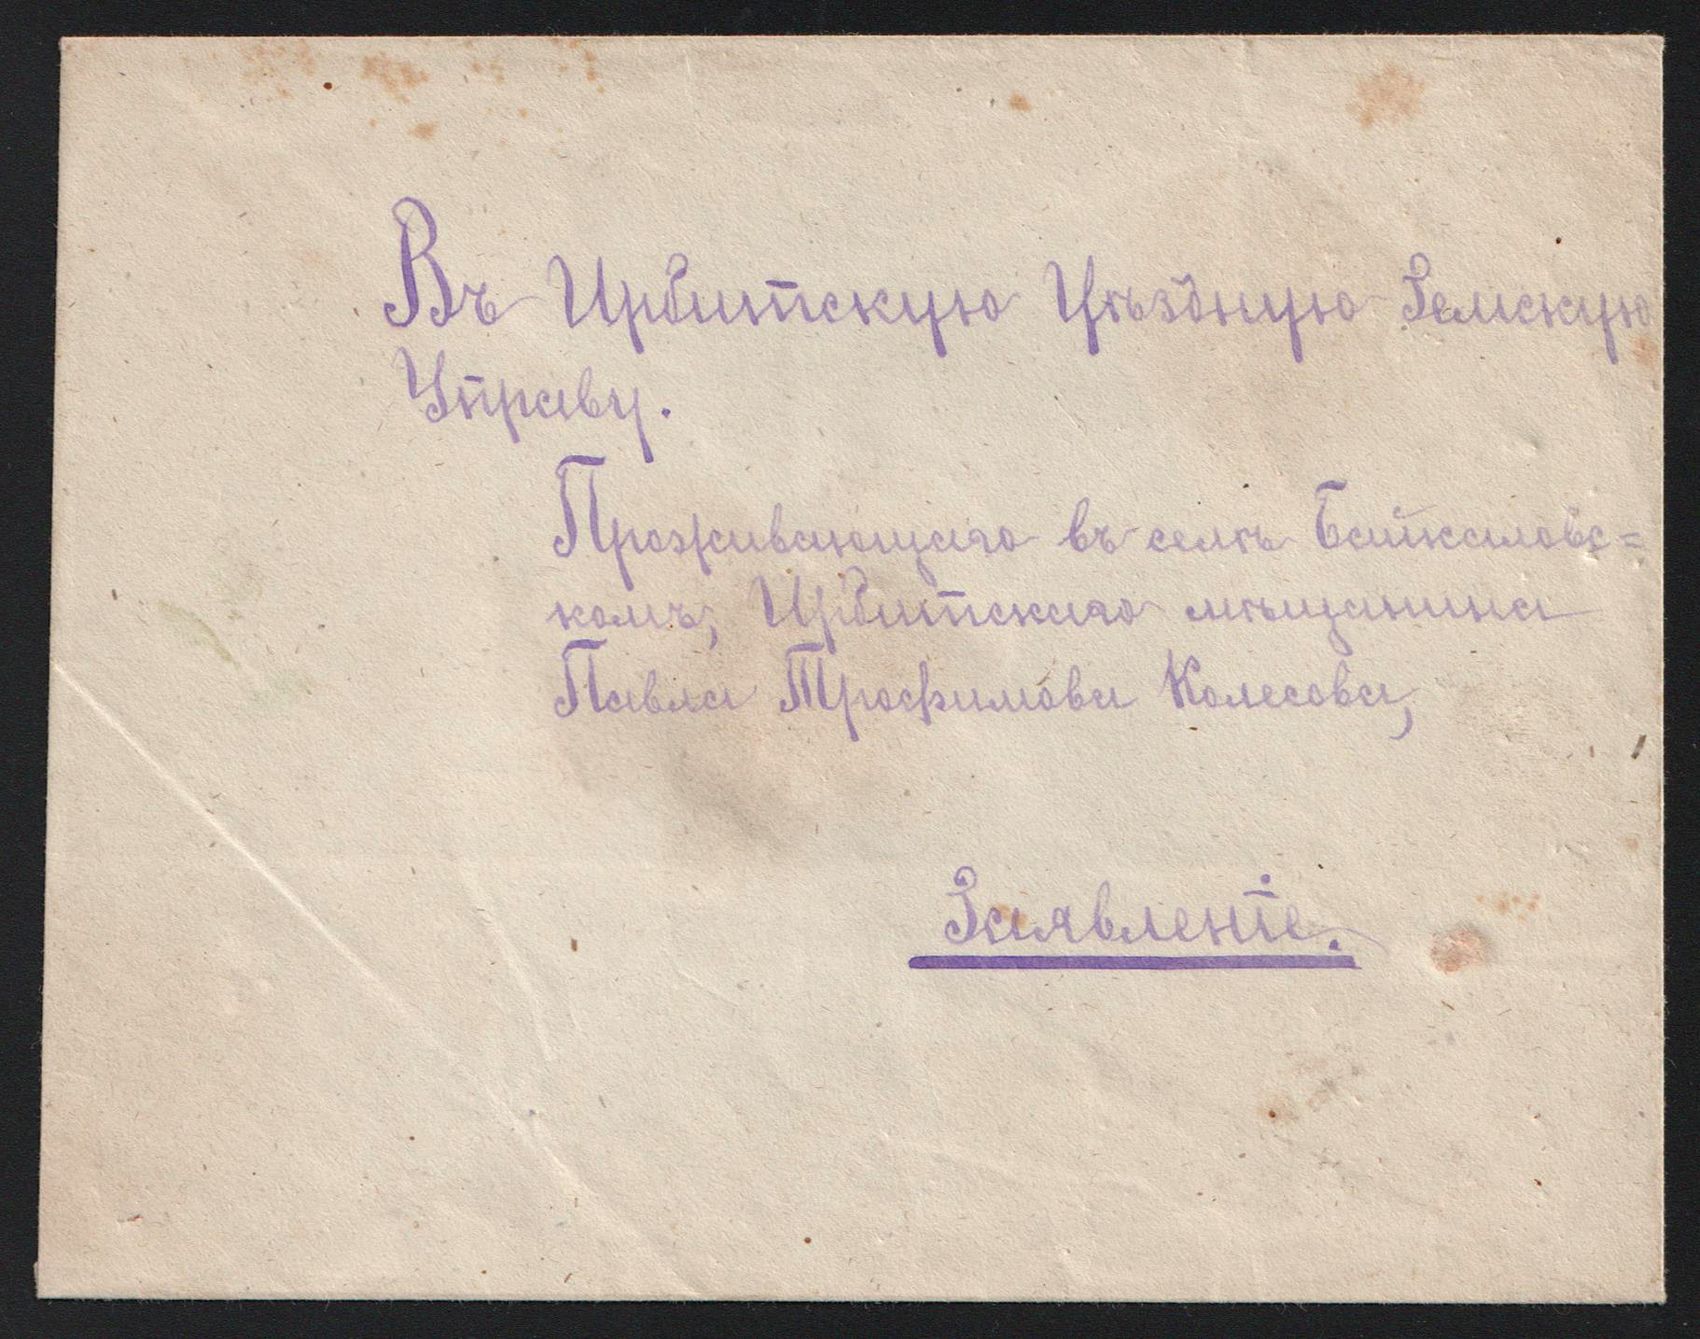 Въ Ирбитскую Уѣздную Земскую
Управу.
Проживающаго въ селѣ Байкаловс=
комъ, Ирбитскаго мѣщанина
Павла Трофимова Колесова,
Заявленіе.